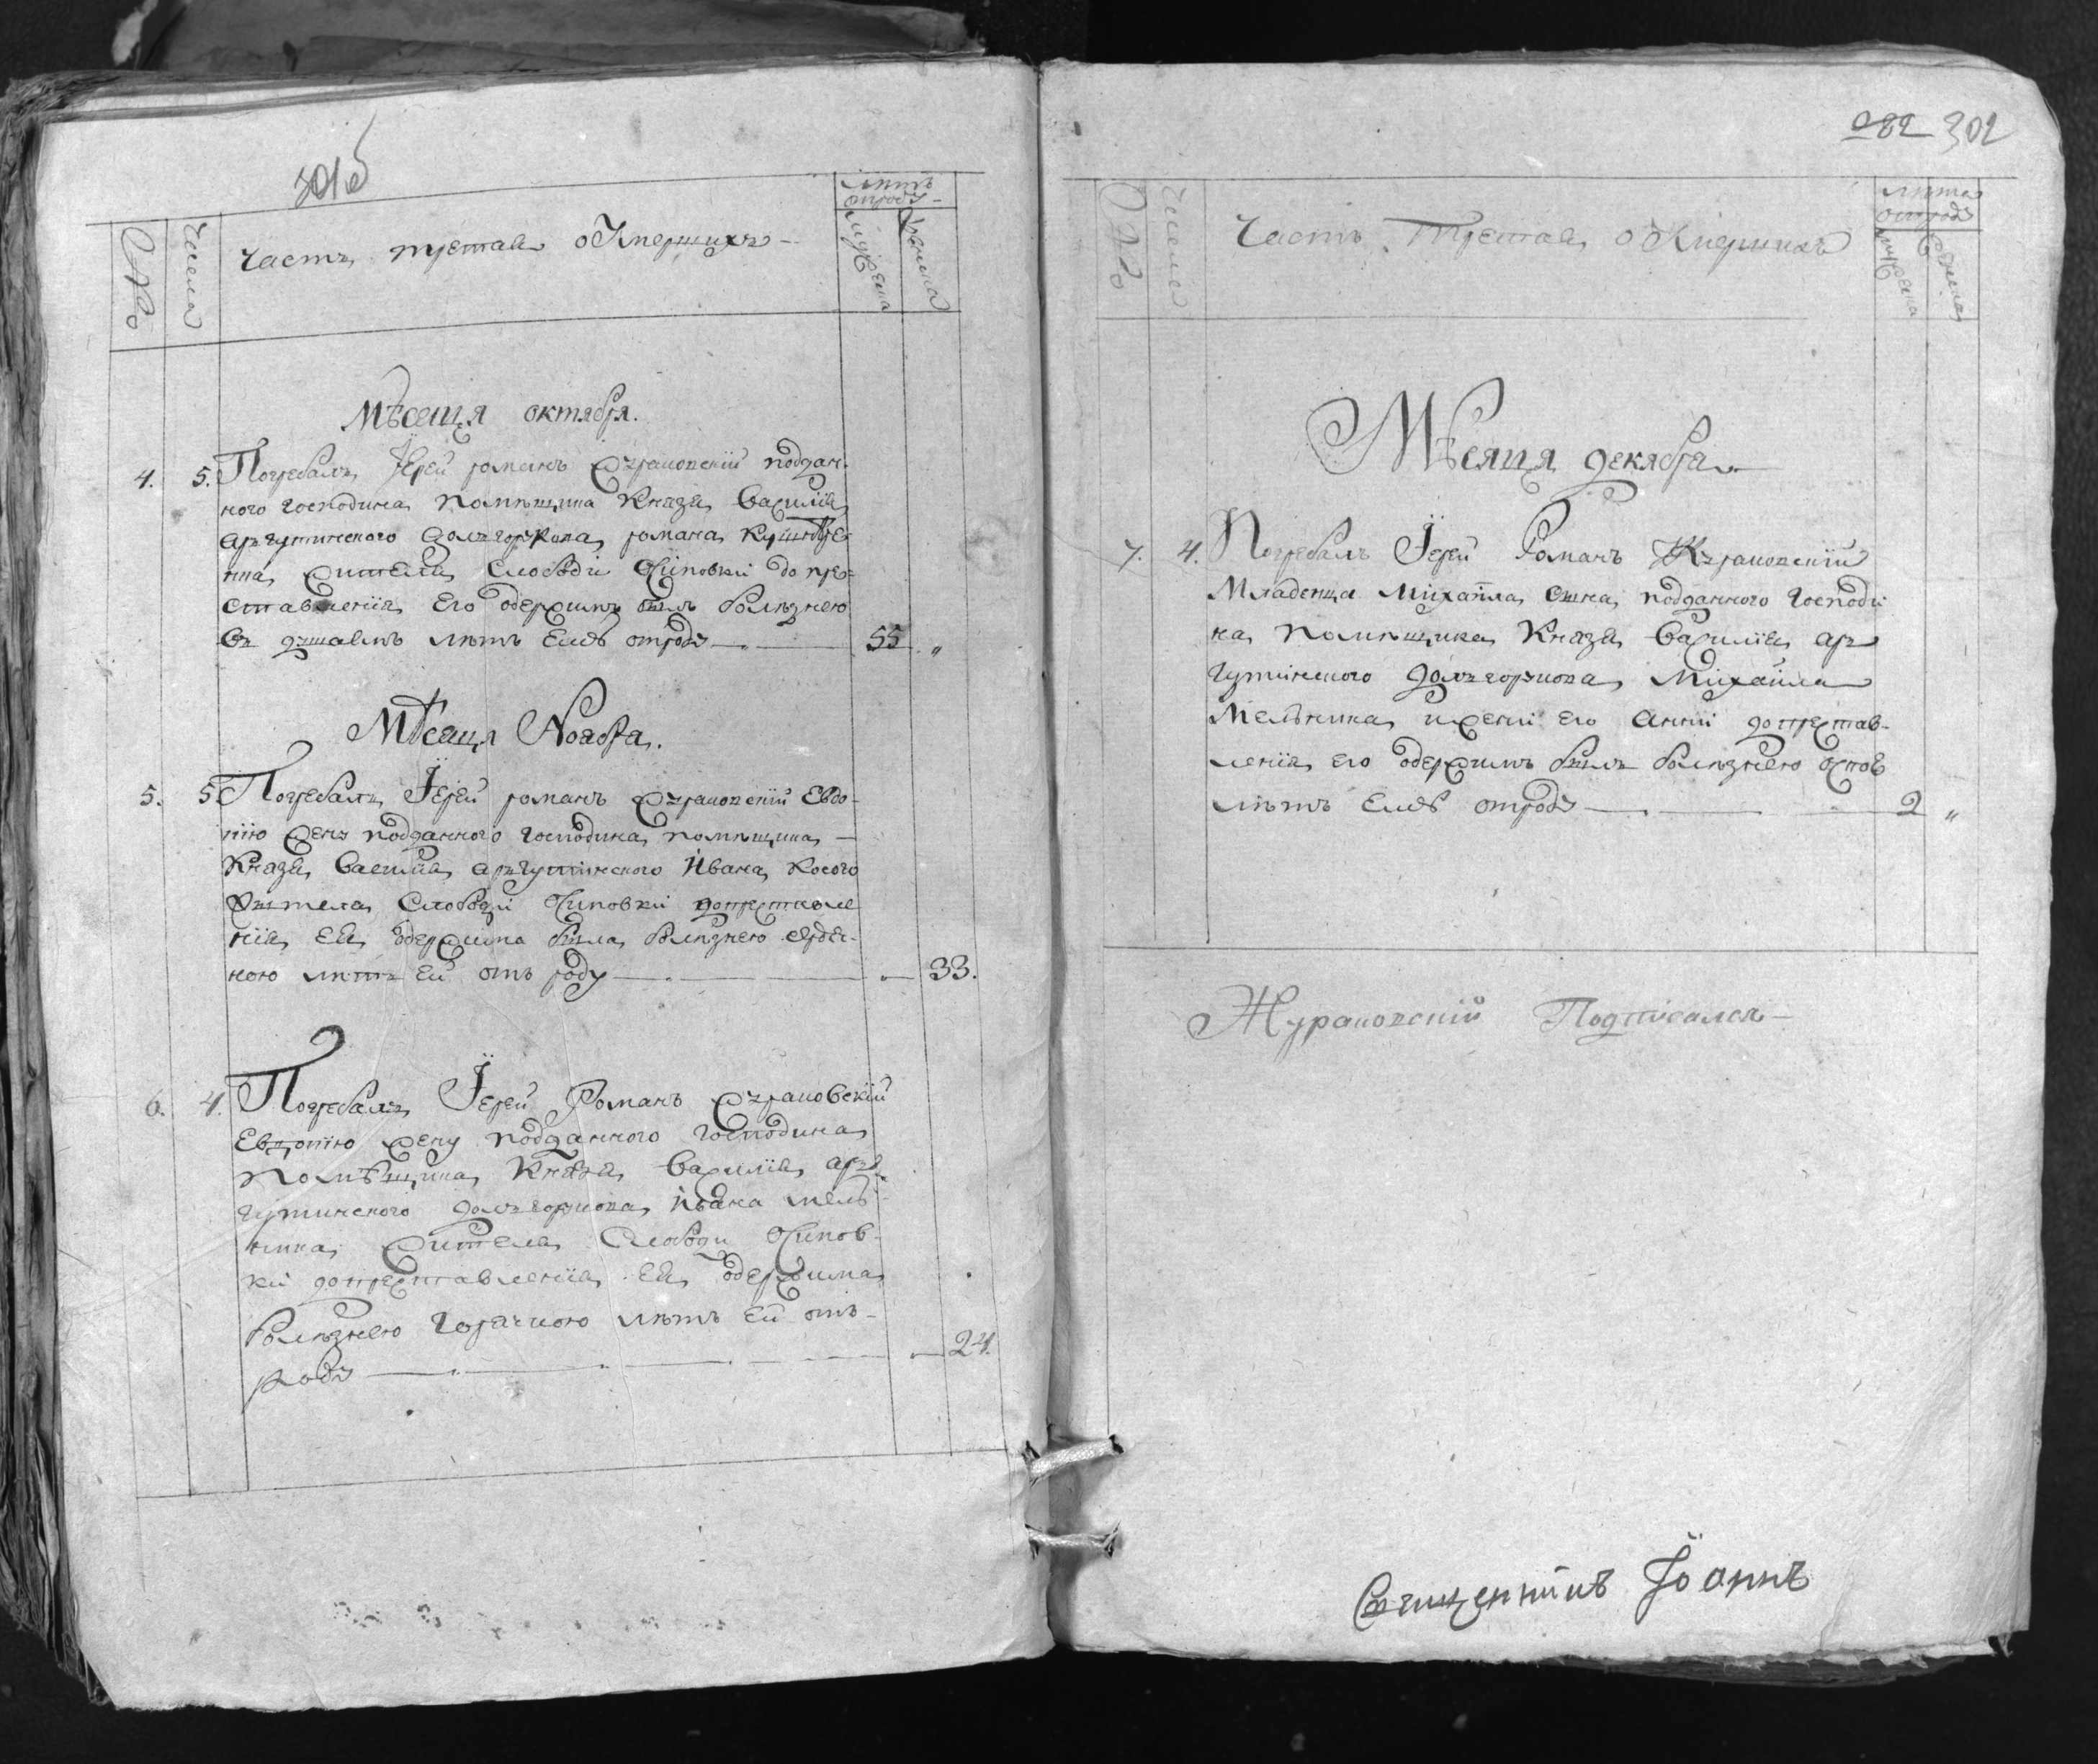 301б
Число
Часть третая о Умершихъ
лѣтъ
отроду
Мужеска
Женска
Мѣсеця октября.
4. 5. Погребалъ Іерей романъ Жураковскій поддан-
ного господина помѣщика Князя Василія
аргутинского долъгорукова романа
жителя Слободи Осиповки до пре-
ставленія Его одержимъ былъ болѣзнею
лѣтъ Ему отроду 55 „
Мѣсяця Ноября.
5. 5. Погребалъ Іерей романъ Жураковскій Евдо-
кію жену подданного господина помѣщика
Князя Василія аргутинского Ивана Косого
жителя Слободи Осиповки допреставле
нія Ея одержима была болѣзнею
ною лѣтъ Ей отъ роду 33.
6. 4. Погребалъ Іерей Романъ Жураковскій
Евдокію жену подданного господина
помѣщика Князя Василія арь
гутинского долъгорукова Ивана мель
ника жителя Слободи Осипов-
ки допреставленія Ея одержима
болѣзнею горячкою лѣтъ Ей отъ-
роду 24.
282 302
Число
Часть Третая о Умершихъ
лѣта
отроду
Мужеска
Женска
Мѣсяця декабря
7. 4. Погребалъ Іерей Романъ Жураковскій
Младенца Михаила сына подданного Господи
на помѣщика Князя Василія арь
гутинского долъгорукова Михаила
Мельника и жени его Анни допрестав-
ленія его одержимъ былъ болѣзнею
лѣтъ Ему отроду 2 „
Жураковскій Подписался
Священникъ Іоаннъ